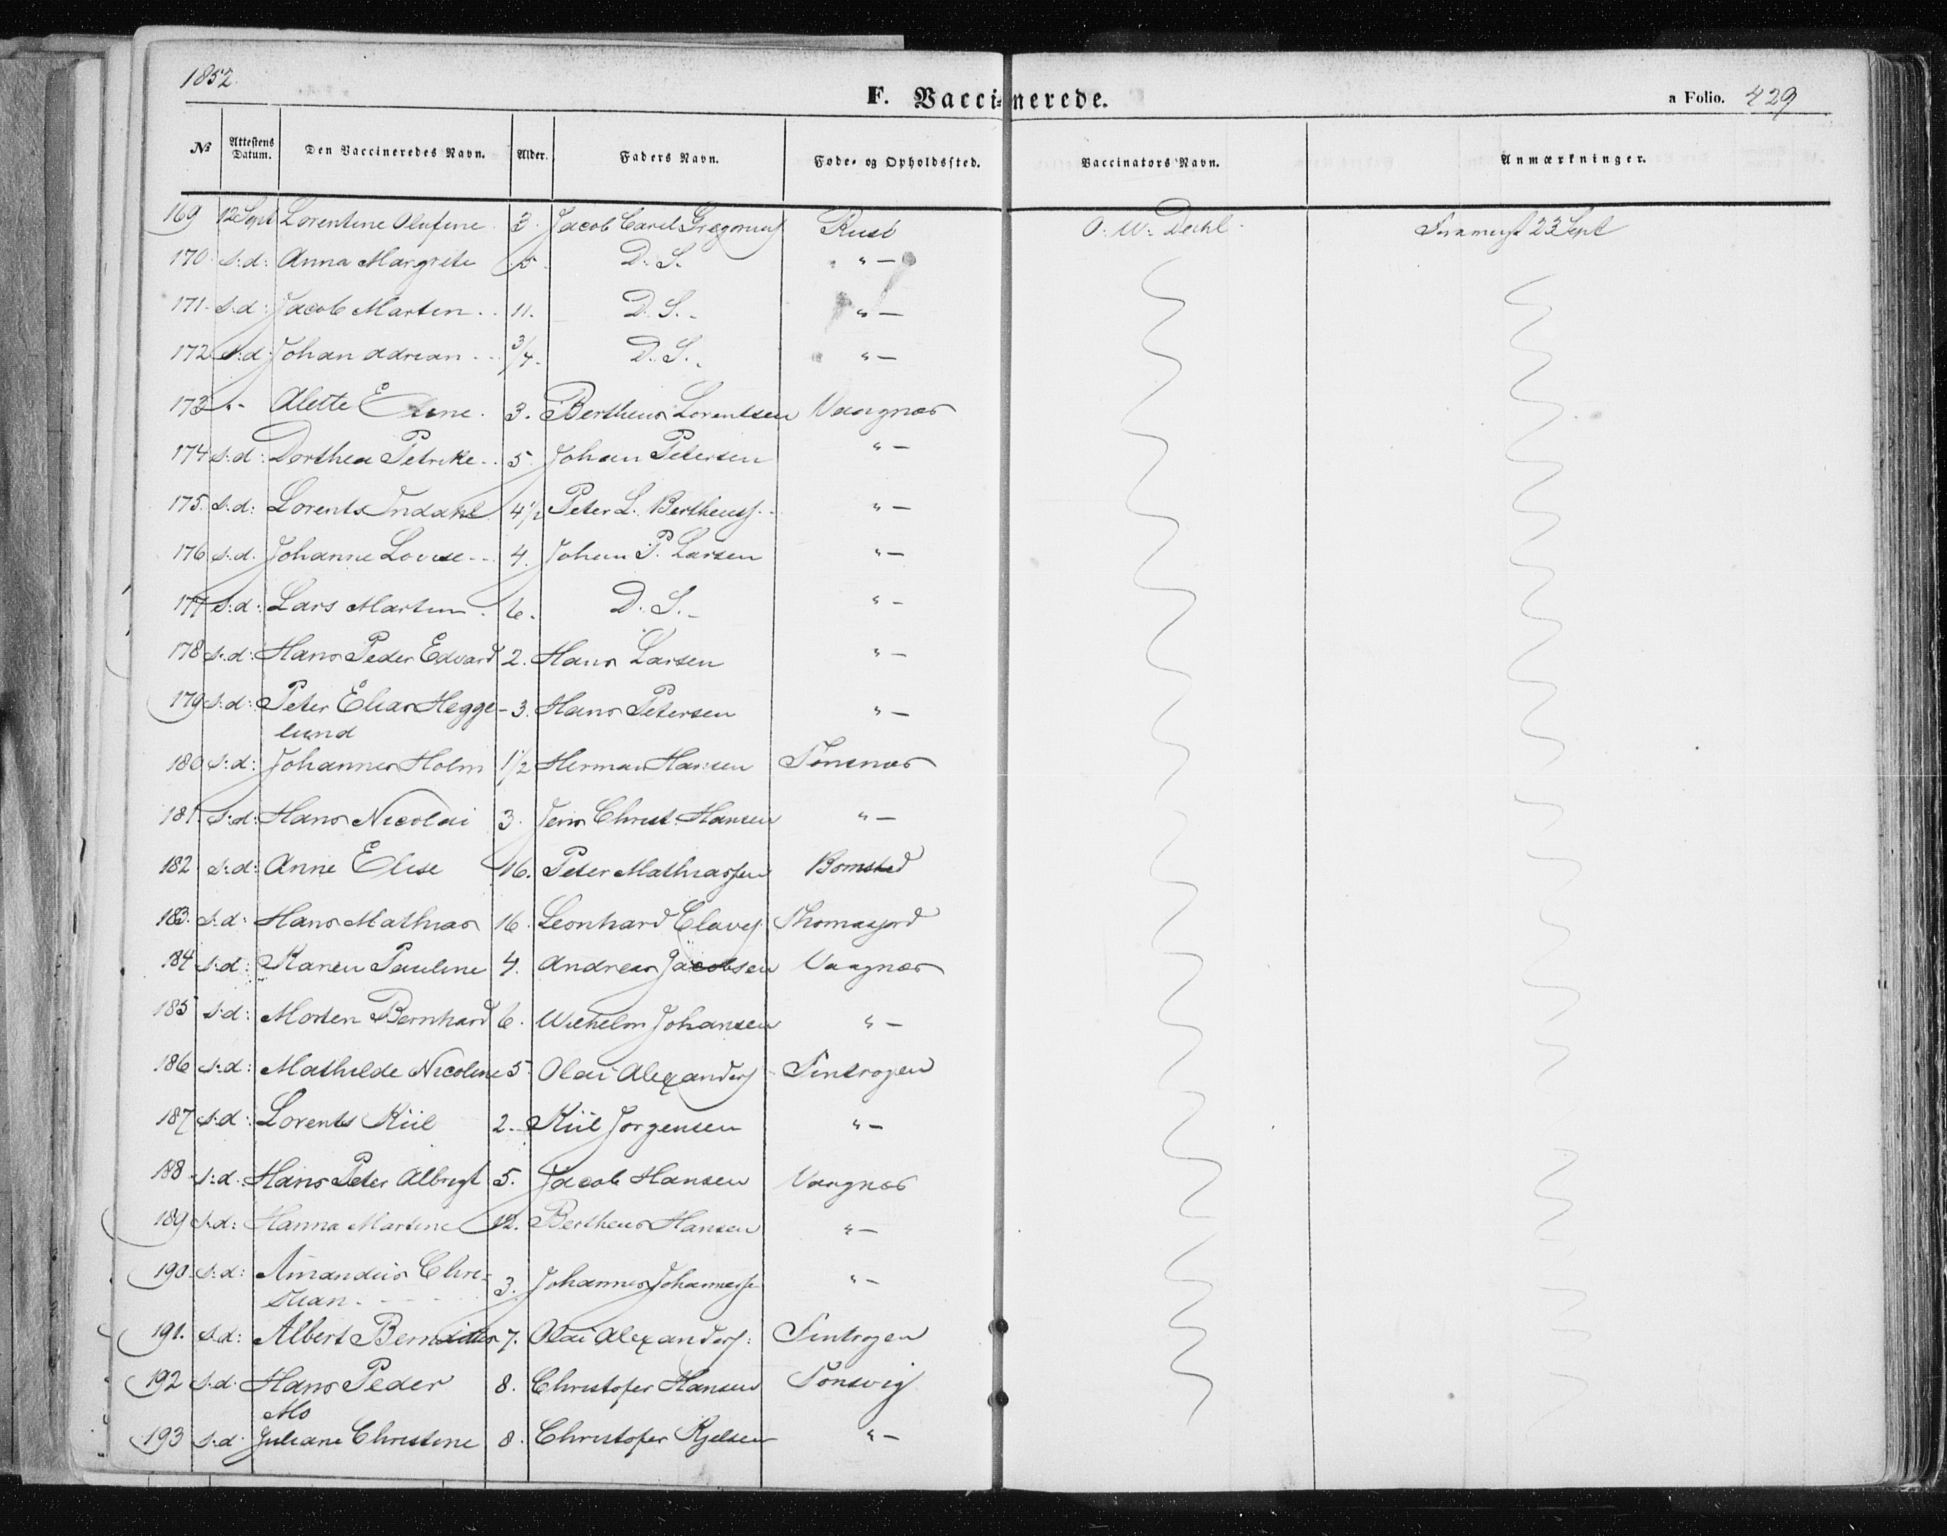 1852.
F. Vaccinerede.
a Folio. 429
№ Attestens Datum. Den Vaccineredes Navn. Alder. Faders Navn. Føde- og Opholdssted. Vaccinators Navn. Anmærkninger.
169 12 Sept Lorentine Olufine. 3. Jacob Carel Gregoriusf O. W. Dahl. 23 Sept
170. s:d: Anna Margrete 5. D. S. " —
171. s.d: Jacob Martin. . 11. D. S. - " —
172 s.d: Johan Adrian - . 3/4. D. S. - " —
173 . - Alette Eline. 3. Bertheus Lorentsen Vaagnæs
174 s.d: Dorthea Petrike. . 5. Johan Petersen " —
175. s.d: Lorents Indahl 4 1/2 Peter L. Bertheusf. - " —
176 s.d. Johanne Lovise - - 4. Johan P. Larsen " —
177 s.d: Lars Martin. 6. D. S. - " —
178 s.d: Hans Peder Edvard 2. Hans Larsen " —
179 s.d: Peter Elias Hegge- 3. Hans Petersen " —
lund
180 s.d: Johannes Holm 1 1/2 Herman Hansen Tønsnæs
181. s.d: Hans Nicolai 3. Jens Christ. Hansen " —
182 s.d: Anne Elise 16. Peter Mathiassen
183. s.d: Hans Mathias 16. Leonhard Thomasjord
184 s.d: Karen Pauline 4. Andreas Jacobsen Vaagnæs
185 s.d: Morten Bernhard 6. Wilhelm Johansen " —
186 s.d: Mathilde Nicoline 5. Olai Alexandersf Sintrogen
187 s.d: Lorents Kiil 2. Kiil Jørgensen " —
188 s.d. Hans Peter Albrigt 5. Jacob Hansen Vaagnæs
189 s.d: Hanna Martine 12. Bertheus Hansen " —
190. s.d: Amandus Chri- 3. Johannes Johannesse " —
stian. - -
191. s.d: Albert 7. Olai Alexandersf: Sintrogen
192 s.d. Hans Peder 8. Christofer Hansen Tønsvig
Mo
193 s.d. Juliane Christine 8. Christofer Kjelsen " —